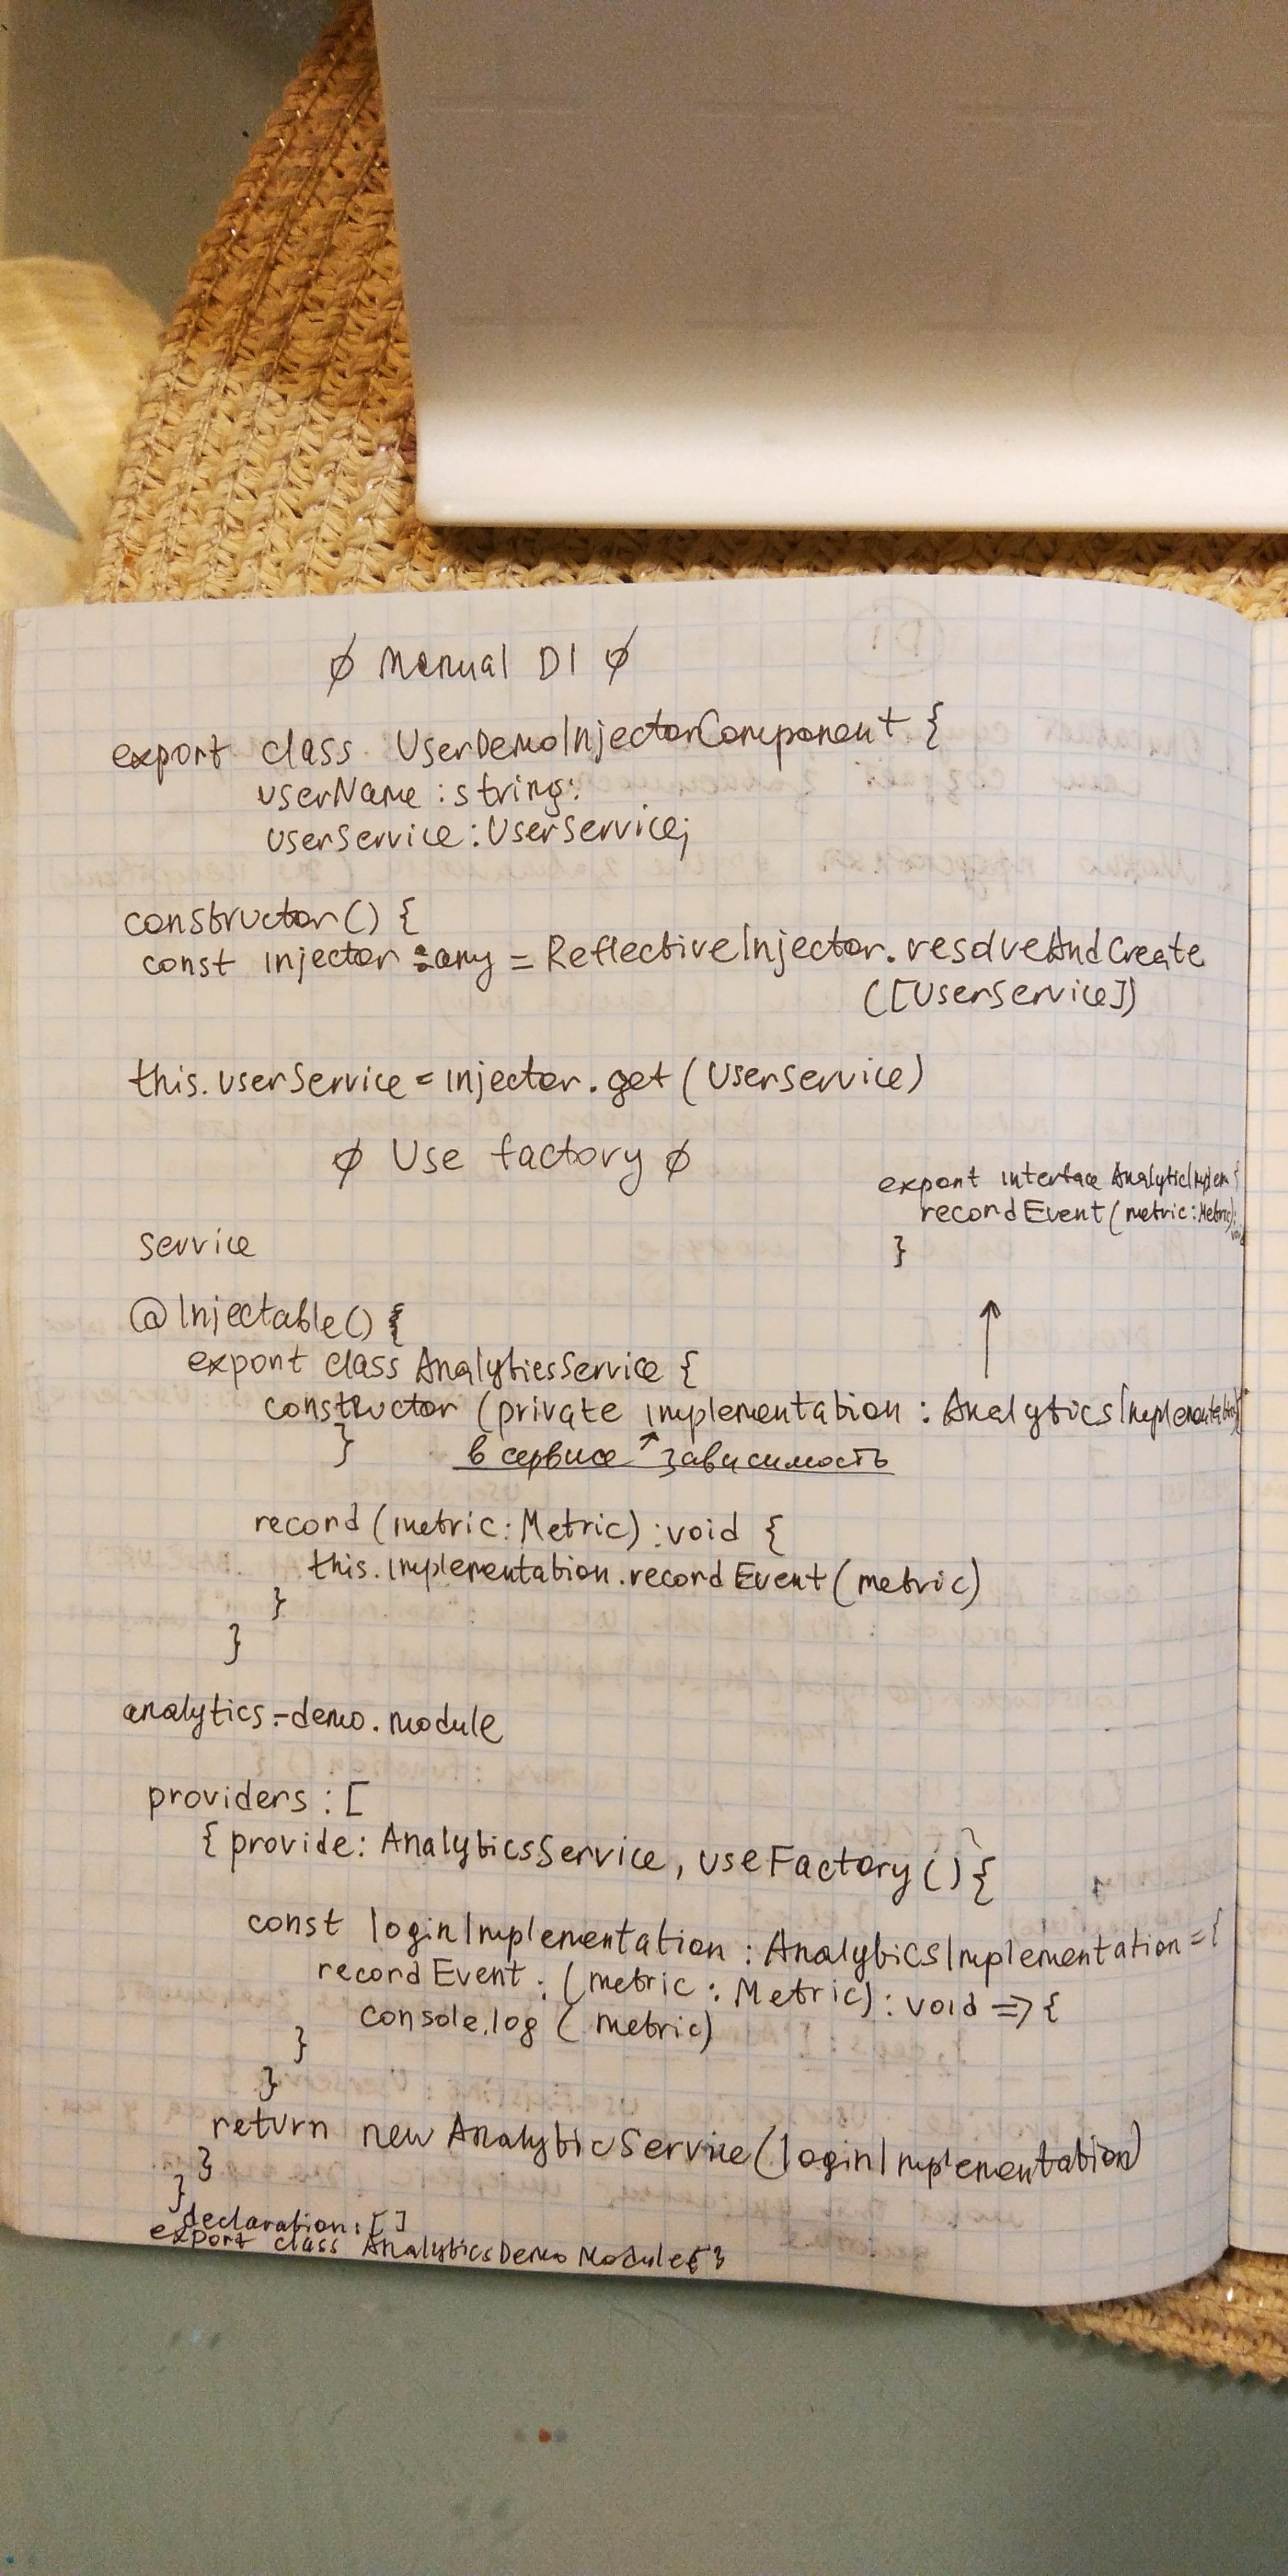 ∅ Manual DI ∅
export class UserDemoInjectorComponent {
userName : string;
userService : UserService;
constructor() {
const injector : any = ReflectiveInjector.resolveAndCreate
([UserService])
this.userService = injector.get(UserService)
∅ Use factory ∅
export interface AnalyticImplem {
recordEvent(metric : Metric): void
}
service
@Injectable()
export class AnalyticsService {
constructor (private implementation : AnalyticsImplementation)
}
в сервисе зависимость
record (metric : Metric) : void {
this.implementation.recordEvent(metric)
}
}
analytics-demo.module
providers : [
{ provide: AnalyticsService, useFactory () {
const loginImplementation : AnalyticsImplementation = {
recordEvent : (metric : Metric) : void => {
console.log ( metric)
}
}
return new AnalyticService(loginImplementation)
}
}
declaration: []
export class AnalyticsDemoModule { }